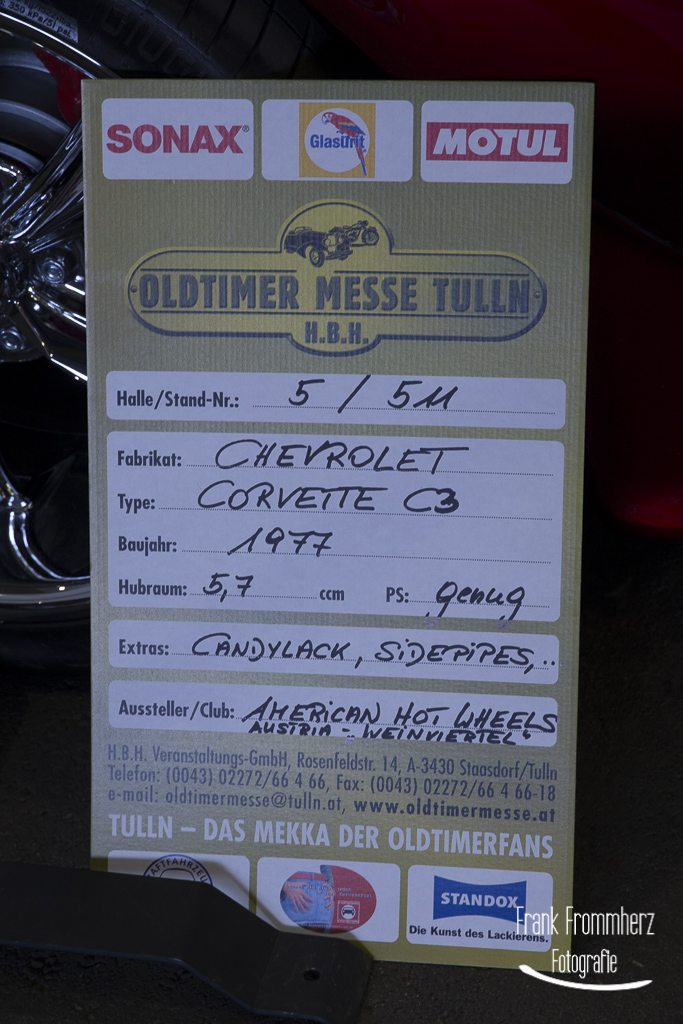 350 kPa/51 psi
SONAX®
Glasurit
MOTUL
OLDTIMER MESSE TULLN
H.B.H.
Halle/Stand-Nr.: 5 / 511
Fabrikat: CHEVROLET
Type: CORVETTE C3
Baujahr: 1977
Hubraum: 5,7 ccm PS: „genug“
Extras: CANDYLACK, SIDEPIPES,..
Aussteller/Club: AMERICAN HOT WHEELS
AUSTRIA - „WEINVIERTEL“
H.B.H. Veranstaltungs-GmbH, Rosenfeldstr. 14, A-3430 Staasdorf/Tulln
Telefon: (0043) 02272/66 4 66, Fax: (0043) 02272/66 4 66-18
e-mail: oldtimermesse@tulln.at, www.oldtimermesse.at
TULLN – DAS MEKKA DER OLDTIMERFANS
STANDOX
Die Kunst des Lackierens.
Frank Frommherz
Fotografie